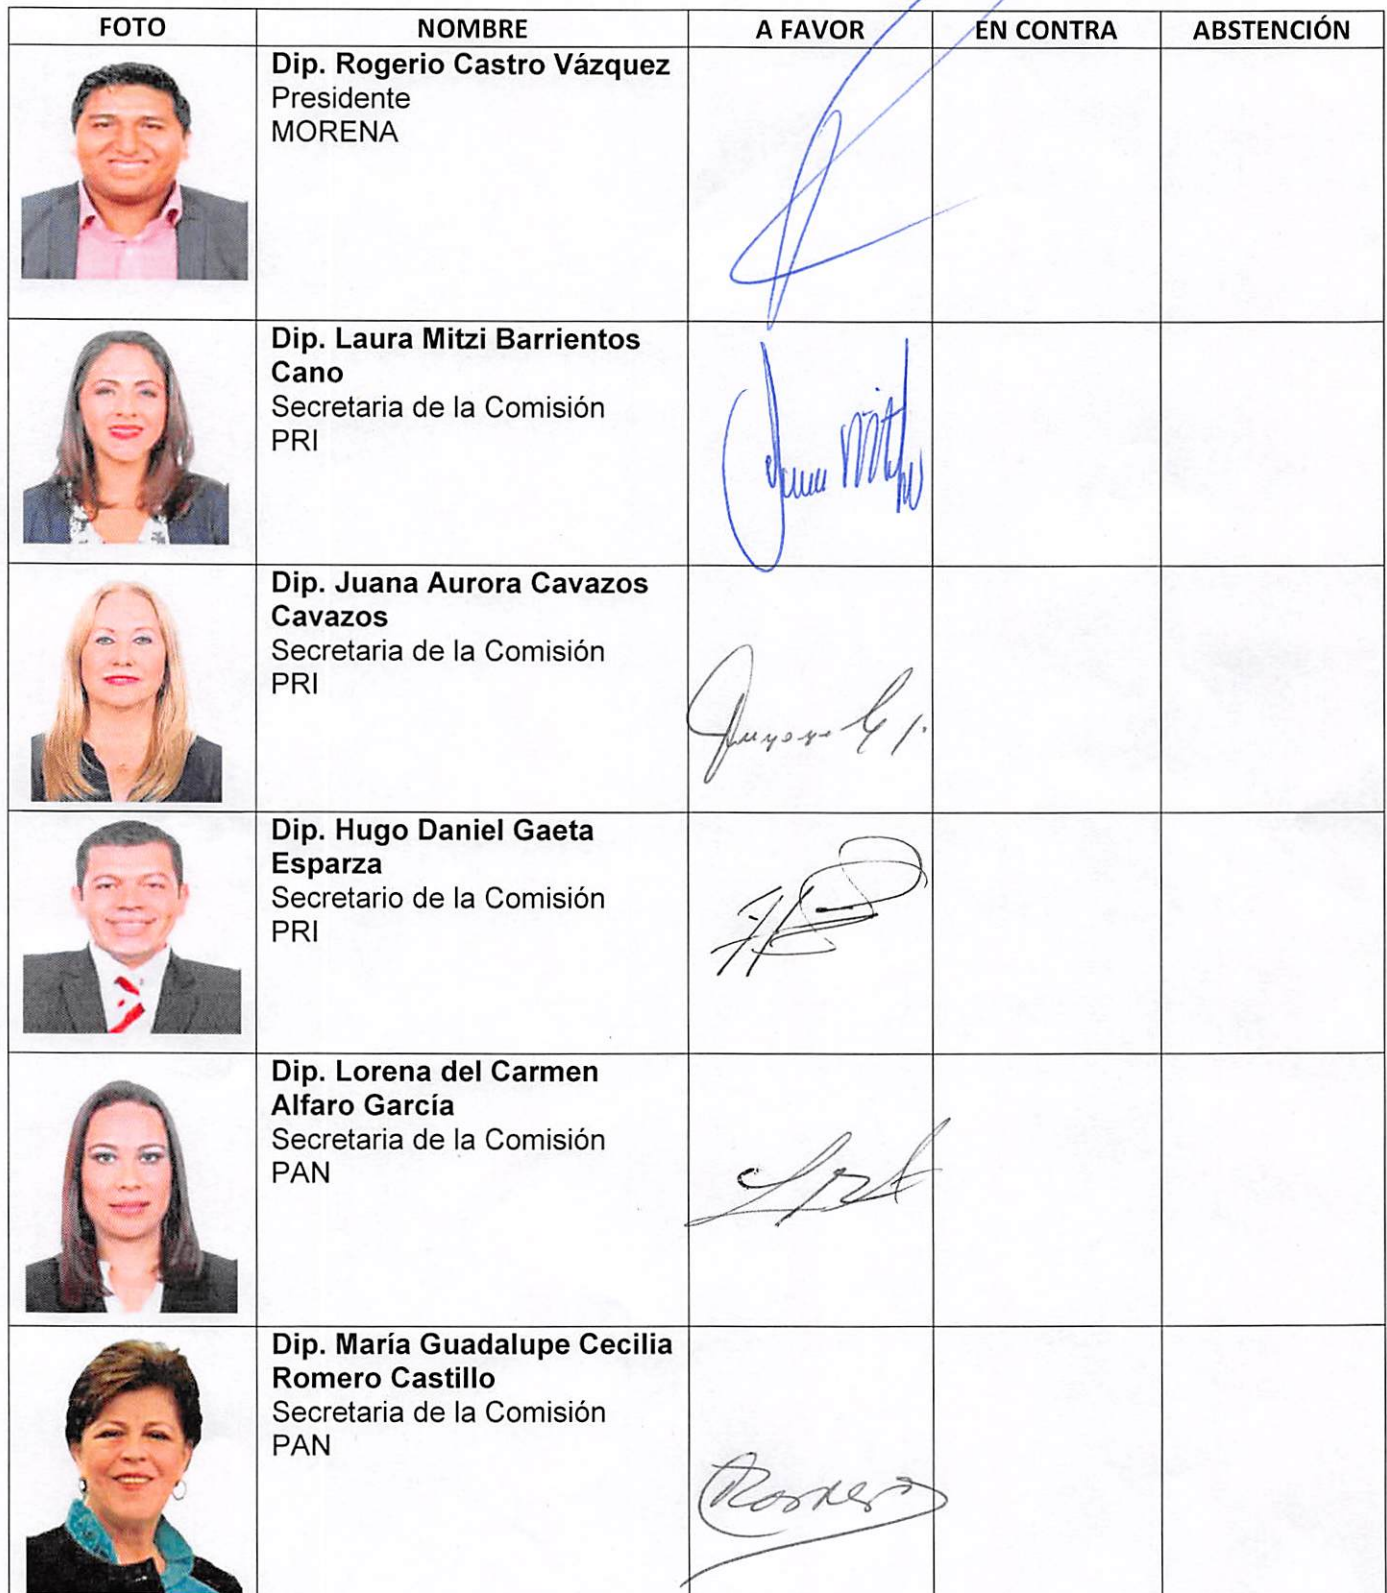 FOTO NOMBRE A FAVOR EN CONTRA ABSTENCIÓN
Dip. Rogerio Castro Vázquez
Presidente
MORENA
Dip. Laura Mitzi Barrientos
Cano
Secretaria de la Comisión
PRI
Dip. Juana Aurora Cavazos
Cavazos
Secretaria de la Comisión
PRI
Dip. Hugo Daniel Gaeta
Esparza
Secretario de la Comisión
PRI
Dip. Lorena del Carmen
Alfaro García
Secretaria de la Comisión
PAN
Dip. María Guadalupe Cecilia
Romero Castillo
Secretaria de la Comisión
PAN